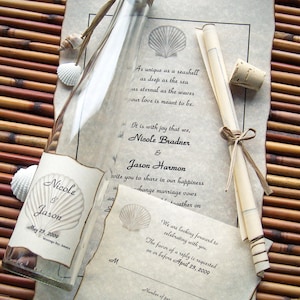 As unique as a seashell
as deep as the sea
as eternal as the waves
our love is meant to be.
It is with joy that we,
Nicole Bradner
&
Jason Harmon
invite you to share in our happiness
exchange marriage vows
Nicole
&
Jason
May 29, 2009
We are looking forward to
celebrating with you.
The favor of a reply is requested
on or before April 29, 2009
M
Number of